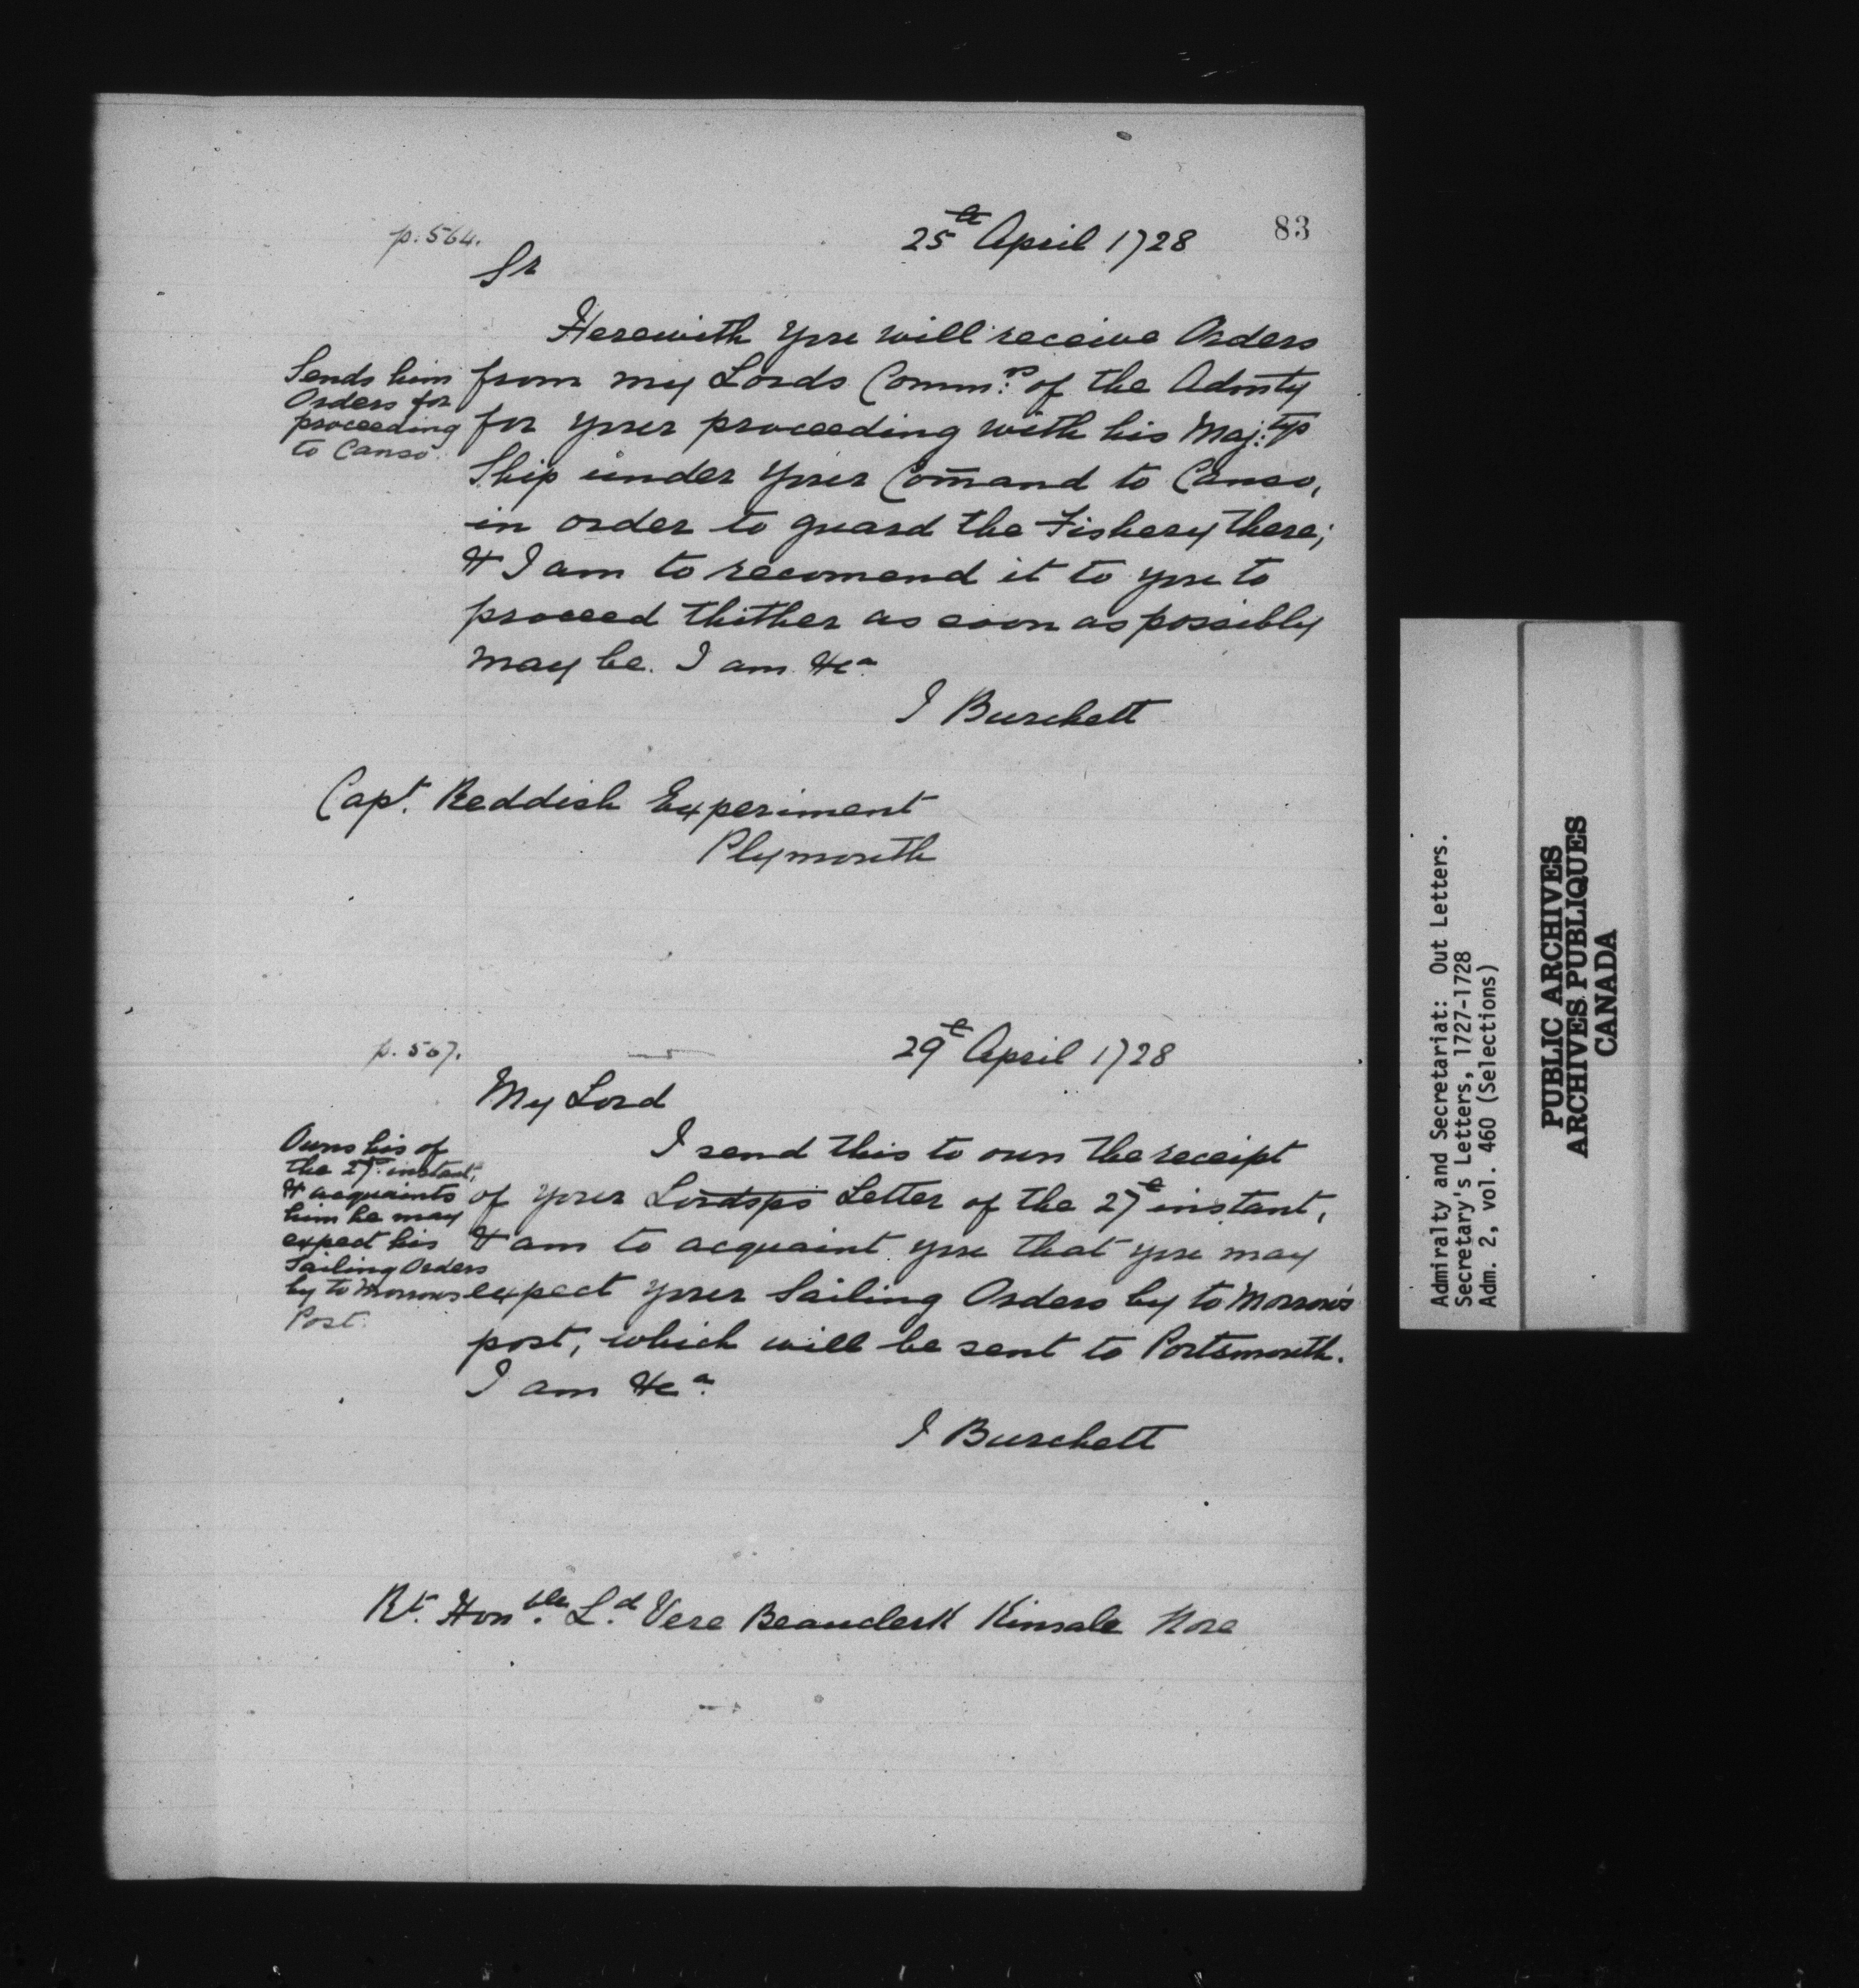 83
p. 564.
25th April 1728
Sr
Herewith you will receive Orders
Sends him
Orders for
proceeding
to Canso.
from my Lords Commrs of the Admty
for your proceeding with his Maj:tys
Ship under your Com̄and to Canso,
in order to guard the Fishery there;
& I am to recomend it to you to
proceed thither as soon as possibly
may be. I am &ca
J Burchett
Capt. Reddish Experiment
Plymouth
p. 567.
29th April 1728
My Lord
Owns his of
the 27th instant,
& acquaints
him he may
expect his
Sailing Orders
by to Morrows
Post.
I send this to own the receipt
of your Lordsps Letter of the 27th instant,
& am to acquaint you that you may
expect your Sailing Orders by to Morrow's
post, which will be sent to Portsmouth.
I am &ca
J Burchett
Rt. Honble. Ld. Vere Beauclerk Kinsale Nore
Admiralty and Secretariat: Out Letters.
Secretary's Letters, 1727-1728
Adm. 2, vol. 460 (Selections)
PUBLIC ARCHIVES
ARCHIVES PUBLIQUES
CANADA